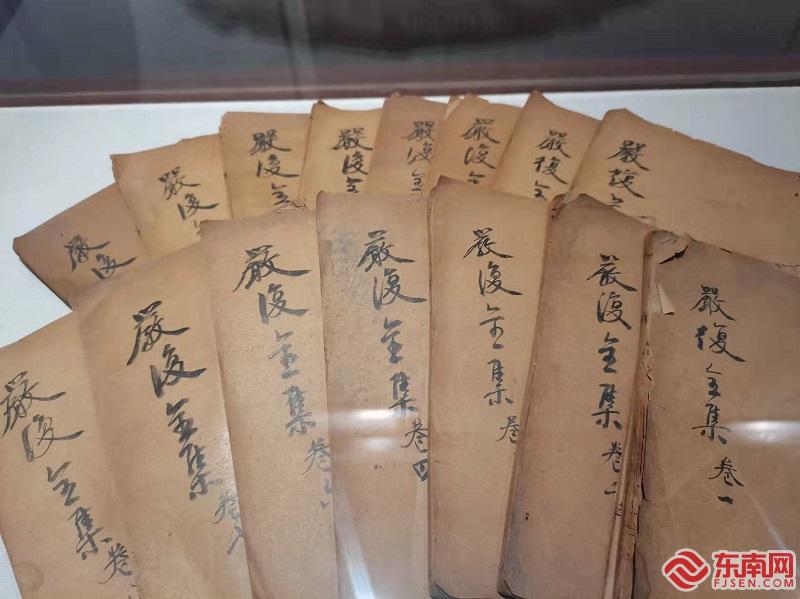 嚴復
嚴復
嚴復全
嚴復全
嚴復全
嚴復全
嚴復全
嚴復全
嚴復全集 卷
嚴復全集 卷
嚴復全集 卷六
嚴復全集 卷四
嚴復全集 卷
嚴復全集 卷二
嚴復全集 卷一
东南网
FJSEN.COM